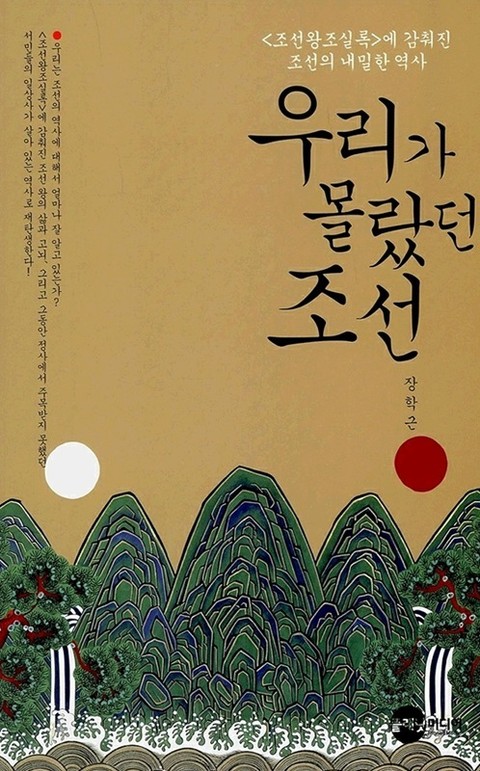 <조선왕조실록>에 감춰진
조선의 내밀한 역사
우리가
몰랐던
조선
장학근
우리는 조선의 역사에 대해서 얼마나 잘 알고 있는가?
<조선왕조실록>에 감춰진 조선 왕의 삶과 고뇌, 그리고 그동안 정사에서 주목받지 못했던
서민들의 일상사가 살아 있는 역사로 재탄생한다!
플래닛미디어